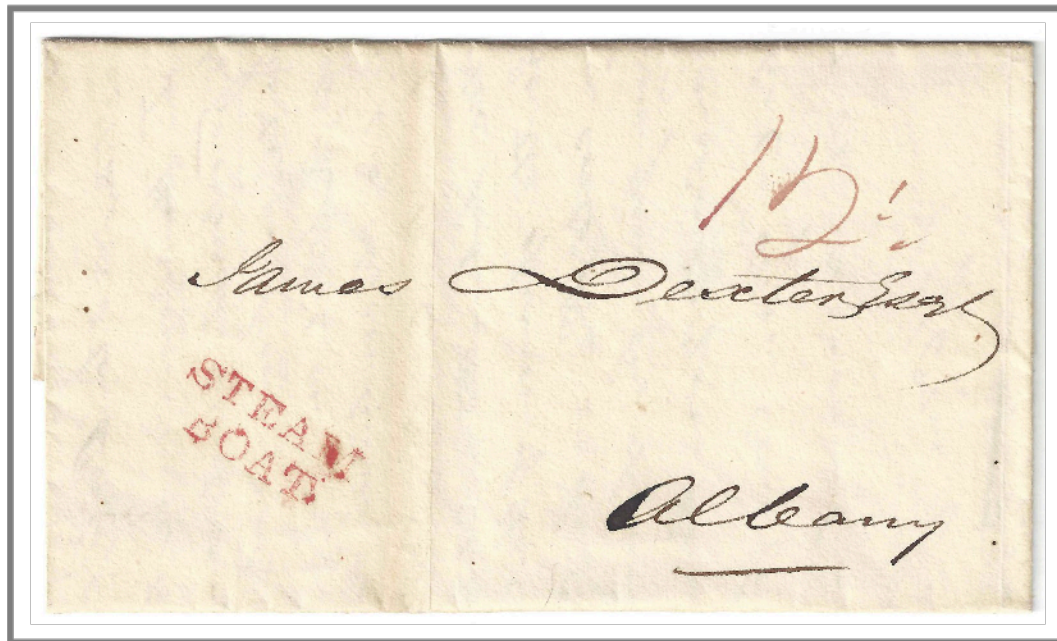 12½
James Dexter Esqr
STEAM
BOAT.
Albany